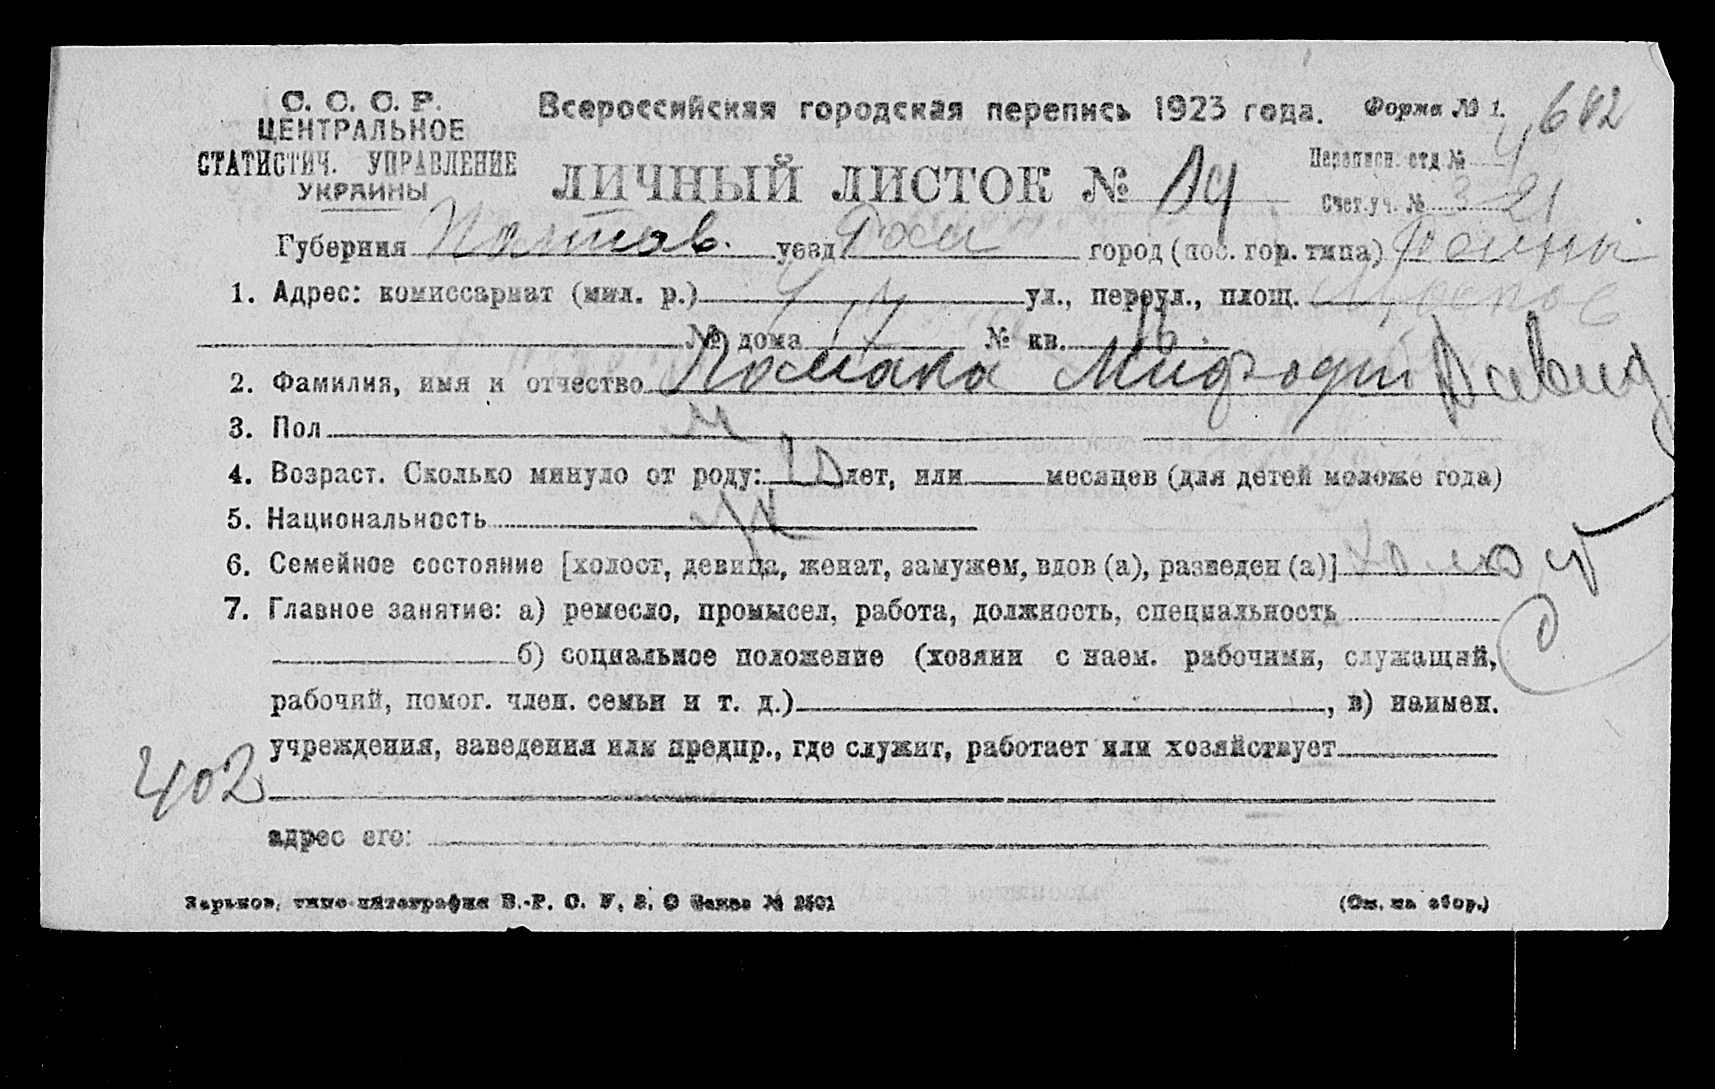 С. С. С. Р.
ЦЕНТРАЛЬНОЕ
СТАТИСТИЧ. УПРАВЛЕНИЕ
УКРАИНЫ
Всероссийская городская перепись 1923 года. Форма № 1. 642
ЛИЧНЫЙ ЛИСТОК №
Переписн. отд № 4
Счет.уч. № 21
Губерния Полтав. уезд Ром город (пос. гор. типа) Ромны
1. Адрес: комиссариат (мил. р.) ул., переул., площ.
№ дома № кв.
2. Фамилия, имя и отчество Мифодий Давид
3. Пол м
4. Возраст. Сколько минуло от роду: лет, или месяцев (для детей моложе года)
5. Национальность ук
6. Семейное состояние [холост, девица, женат, замужем, вдов (а), разведен (а)] холост
7. Главное занятие: а) ремесло, промысел, работа, должность, специальность
б) социальное положение (хозяин с наем. рабочими, служащий,
рабочий, помог. член. семьи и т. д.) , в) наимен.
учреждения, заведения или предпр., где служит, работает или хозяйствует
402
адрес его:
Харьков, типо-литография В.-Р. С. У. З. О Заказ № 2501 (См. на обор.)